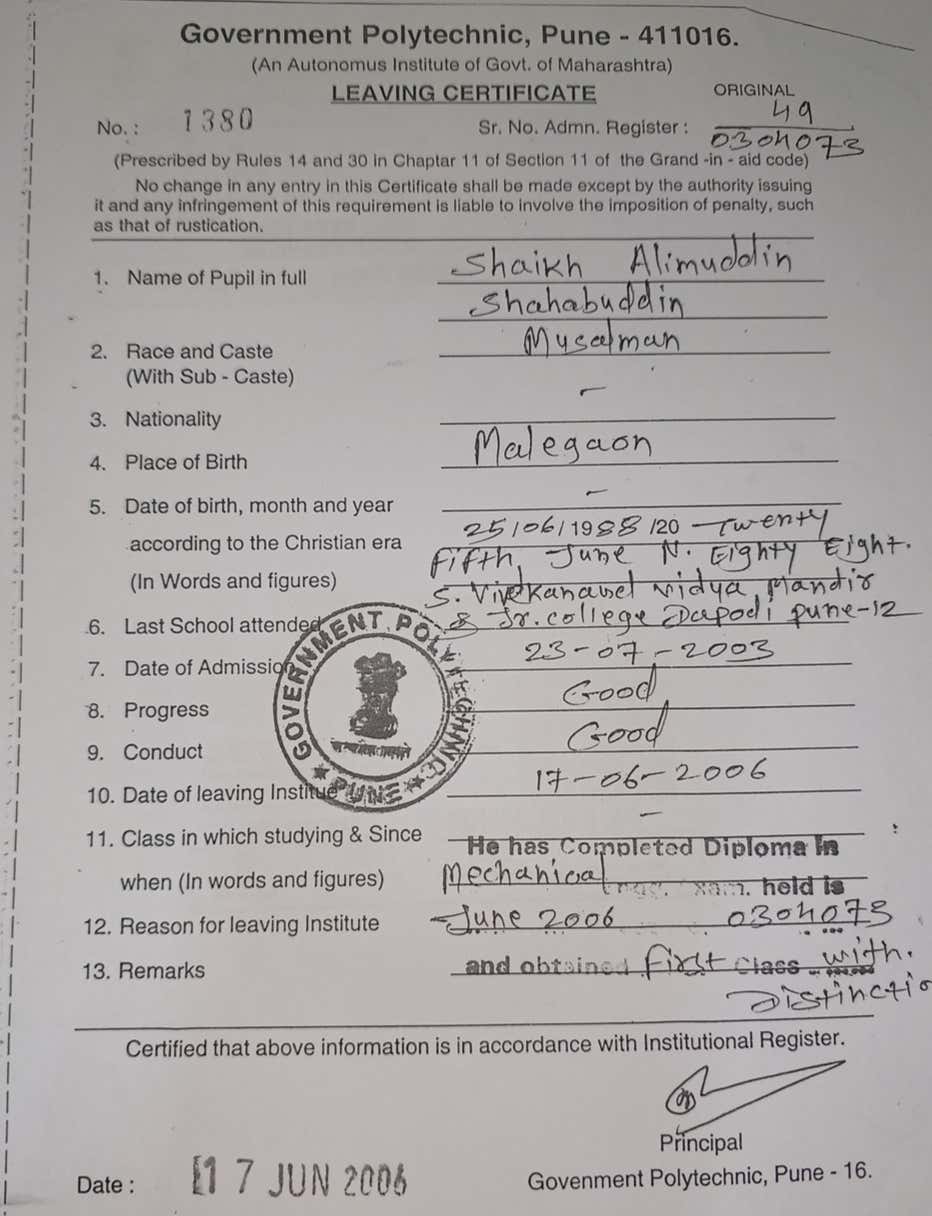 Government Polytechnic, Pune - 411016.
(An Autonomus Institute of Govt. of Maharashtra)
LEAVING CERTIFICATE
ORIGINAL
No. : 1380
Sr. No. Admn. Register : 49
0304073
(Prescribed by Rules 14 and 30 in Chaptar 11 of Section 11 of the Grand -in - aid code)
No change in any entry in this Certificate shall be made except by the authority issuing
it and any infringement of this requirement is liable to involve the imposition of penalty, such
as that of rustication.
1. Name of Pupil in full Shaikh Alimuddin
Shahabuddin
2. Race and Caste Musalman
(With Sub - Caste) -
3. Nationality
4. Place of Birth Malegaon
5. Date of birth, month and year -
25/06/1988 /20 - Twenty
according to the Christian era Fifth, June N. Eighty Eight.
(In Words and figures) S. Vivekanand Vidya Mandir
6. Last School attended & Jr. college Dapodi pune-12
7. Date of Admission 23-07-2003
8. Progress Good
9. Conduct Good
10. Date of leaving Institue 17-06-2006
11. Class in which studying & Since -
He has Completed Diploma in
when (In words and figures) Mechanical Exam. held is
12. Reason for leaving Institute June 2006 0304073
13. Remarks and obtained First Class with.
Distinctio
GOVERNMENT POLYTECHNIC
सत्यमेव जयते
★ PUNE ★
Certified that above information is in accordance with Institutional Register.
Principal
Date : 17 JUN 2006
Govenment Polytechnic, Pune - 16.